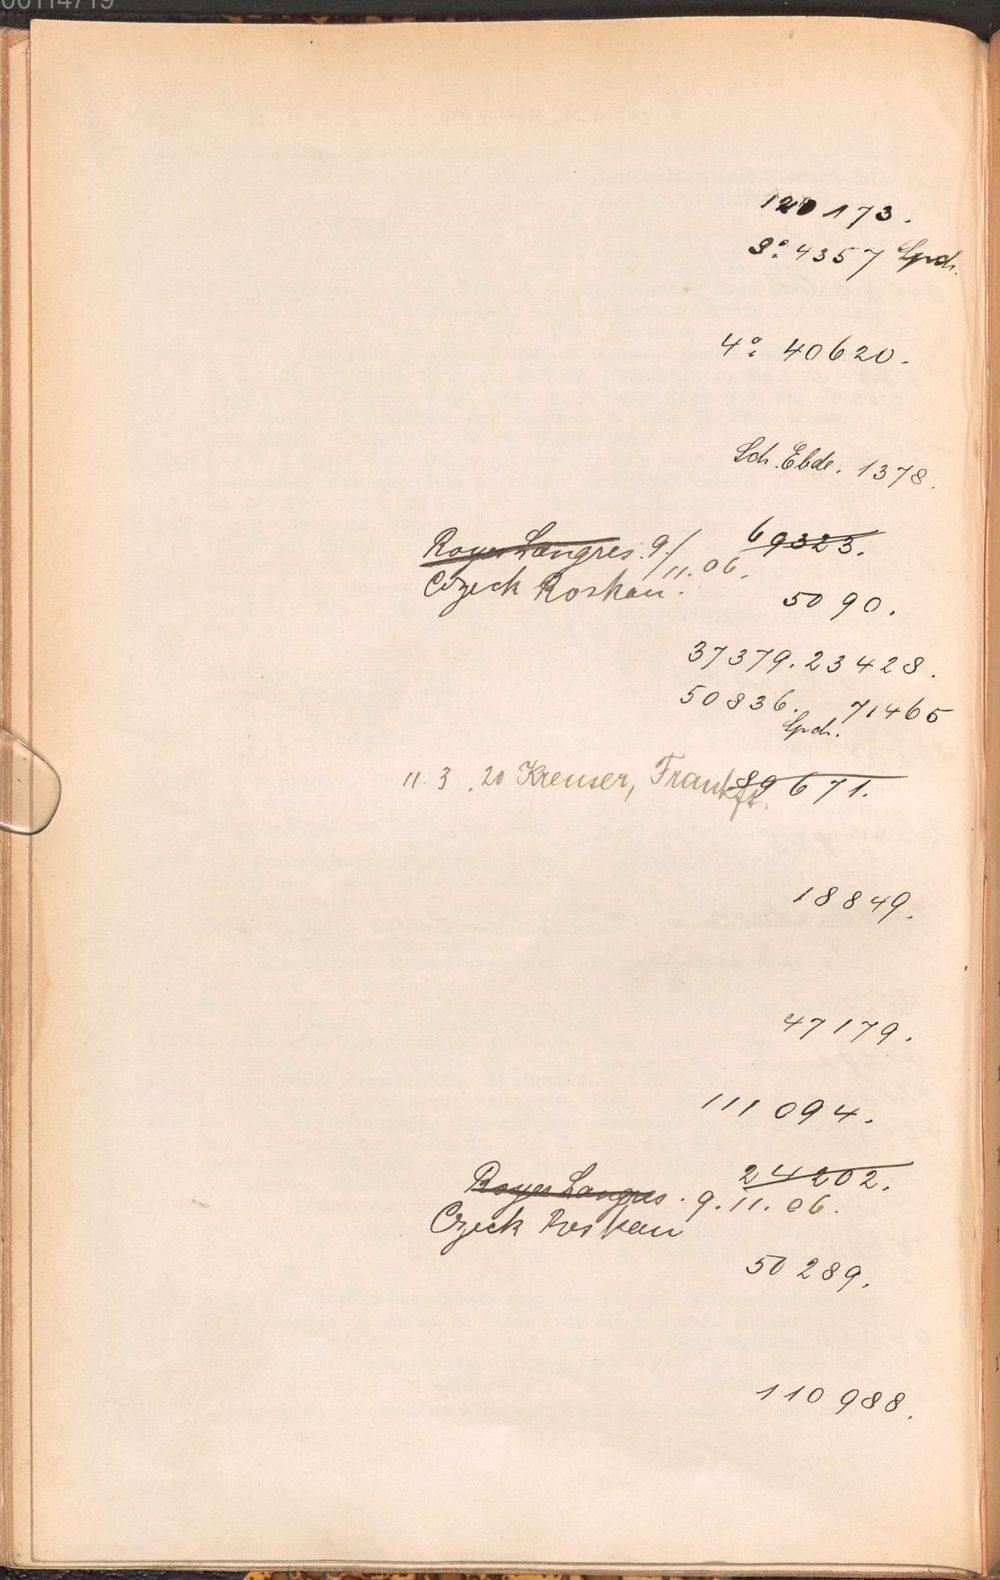 00114719
120173.
8° 4357 Lpch.
4° 40620.
Sch. Ebde. 1378.
Royer Langres. 9./11. 06. 69323.
Czeck Roskau.
5090.
37379. 23428.
50836. 71465
Lpch.
11. 3. 20 Kreuser, Frankft. 89671.
18849.
47179.
111094.
24202.
Royer Langres. 9. 11. 06.
Czeck Roskau
50289.
110988.